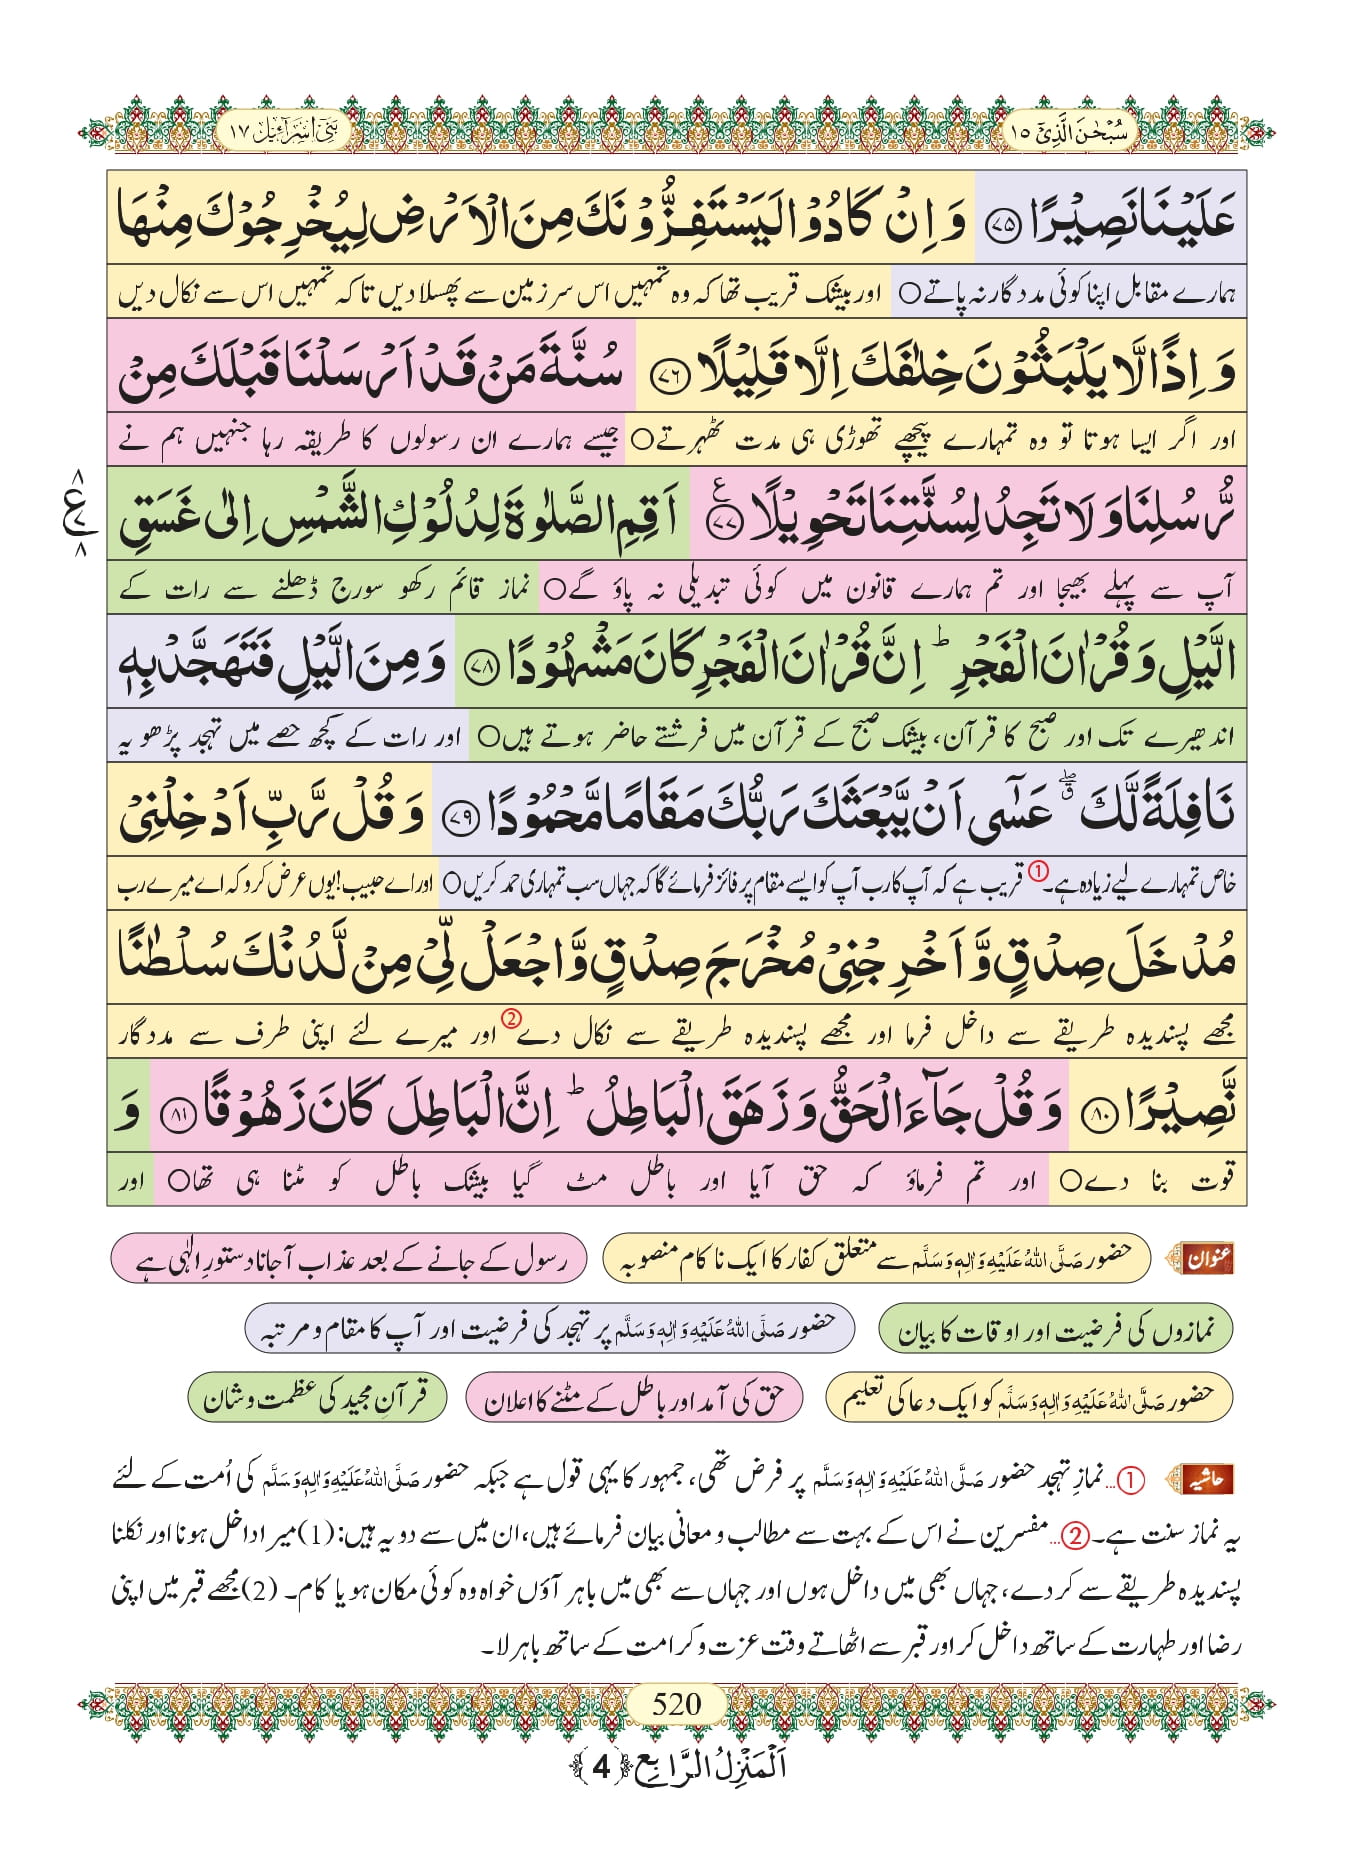 سُبْحٰنَ الَّذِیْۤ ۱۵
بَنِیْۤ اِسْرَآءِیْل ۱۷
عَلَیْنَا نَصِیْرًا ﴿۷۵﴾ وَ اِنْ كَادُوْا لَیَسْتَفِزُّوْنَكَ مِنَ الْاَرْضِ لِیُخْرِجُوْكَ مِنْهَا
ہمارے مقابل اپنا کوئی مددگار نہ پاتے○ اور بیشک قریب تھا کہ وہ تمہیں اس سرزمین سے پھسلا دیں تاکہ تمہیں اس سے نکال دیں
وَ اِذًا لَّا یَلْبَثُوْنَ خِلٰفَكَ اِلَّا قَلِیْلًا ﴿۷۶﴾ سُنَّةَ مَنْ قَدْ اَرْسَلْنَا قَبْلَكَ مِنْ
اور اگر ایسا ہوتا تو وہ تمہارے پیچھے تھوڑی ہی مدت ٹھہرتے○ جیسے ہمارے ان رسولوں کا طریقہ رہا جنہیں ہم نے
رُّسُلِنَا وَ لَا تَجِدُ لِسُنَّتِنَا تَحْوِیْلًا ﴿۷۷﴾ ع اَقِمِ الصَّلٰوةَ لِدُلُوْكِ الشَّمْسِ اِلٰى غَسَقِ
۸ ع ۷ ۸
آپ سے پہلے بھیجا اور تم ہمارے قانون میں کوئی تبدیلی نہ پاؤ گے○ نماز قائم رکھو سورج ڈھلنے سے رات کے
الَّیْلِ وَ قُرْاٰنَ الْفَجْرِ ؕ اِنَّ قُرْاٰنَ الْفَجْرِ كَانَ مَشْهُوْدًا ﴿۷۸﴾ وَ مِنَ الَّیْلِ فَتَهَجَّدْ بِهٖ
اندھیرے تک اور صبح کا قرآن، بیشک صبح کے قرآن میں فرشتے حاضر ہوتے ہیں○ اور رات کے کچھ حصے میں تہجد پڑھو یہ
نَافِلَةً لَّكَ ۖۗ عَسٰۤى اَنْ یَّبْعَثَكَ رَبُّكَ مَقَامًا مَّحْمُوْدًا ﴿۷۹﴾ وَ قُلْ رَّبِّ اَدْخِلْنِیْ
خاص تمہارے لیے زیادہ ہے۔① قریب ہے کہ آپ کا رب آپ کو ایسے مقام پر فائز فرمائے گا کہ جہاں سب تمہاری حمد کریں○ اور اے حبیب! یوں عرض کرو کہ اے میرے رب
مُدْخَلَ صِدْقٍ وَّ اَخْرِجْنِیْ مُخْرَجَ صِدْقٍ وَّ اجْعَلْ لِّیْ مِنْ لَّدُنْكَ سُلْطٰنًا
مجھے پسندیدہ طریقے سے داخل فرما اور مجھے پسندیدہ طریقے سے نکال دے② اور میرے لئے اپنی طرف سے مددگار
نَّصِیْرًا ﴿۸۰﴾ وَ قُلْ جَآءَ الْحَقُّ وَ زَهَقَ الْبَاطِلُ ؕ اِنَّ الْبَاطِلَ كَانَ زَهُوْقًا ﴿۸۱﴾ وَ
قوت بنا دے○ اور تم فرماؤ کہ حق آیا اور باطل مٹ گیا بیشک باطل کو مٹنا ہی تھا○ اور
عنوان حضور صَلَّی اللہُ عَلَیْہِ وَاٰلِہٖ وَسَلَّم سے متعلق کفار کا ایک ناکام منصوبہ رسول کے جانے کے بعد عذاب آجانا دستورِ الٰہی ہے
نمازوں کی فرضیت اور اوقات کا بیان حضور صَلَّی اللہُ عَلَیْہِ وَاٰلِہٖ وَسَلَّم پر تہجد کی فرضیت اور آپ کا مقام و مرتبہ
حضور صَلَّی اللہُ عَلَیْہِ وَاٰلِہٖ وَسَلَّم کو ایک دعا کی تعلیم حق کی آمد اور باطل کے مٹنے کا اعلان قرآنِ مجید کی عظمت و شان
حاشیہ ①...نمازِ تہجد حضور صَلَّی اللہُ عَلَیْہِ وَاٰلِہٖ وَسَلَّم پر فرض تھی، جمہور کا یہی قول ہے جبکہ حضور صَلَّی اللہُ عَلَیْہِ وَاٰلِہٖ وَسَلَّم کی اُمت کے لئے
یہ نماز سنت ہے۔②...مفسرین نے اس کے بہت سے مطالب و معانی بیان فرمائے ہیں، ان میں سے دو یہ ہیں: (1) میرا داخل ہونا اور نکلنا
پسندیدہ طریقے سے کر دے، جہاں بھی میں داخل ہوں اور جہاں سے بھی میں باہر آؤں خواہ وہ کوئی مکان ہو یا کام۔ (2) مجھے قبر میں اپنی
رضا اور طہارت کے ساتھ داخل کر اور قبر سے اٹھاتے وقت عزت و کرامت کے ساتھ باہر لا۔
520
اَلْمَنْزِلُ الرَّابِع ﴿4﴾